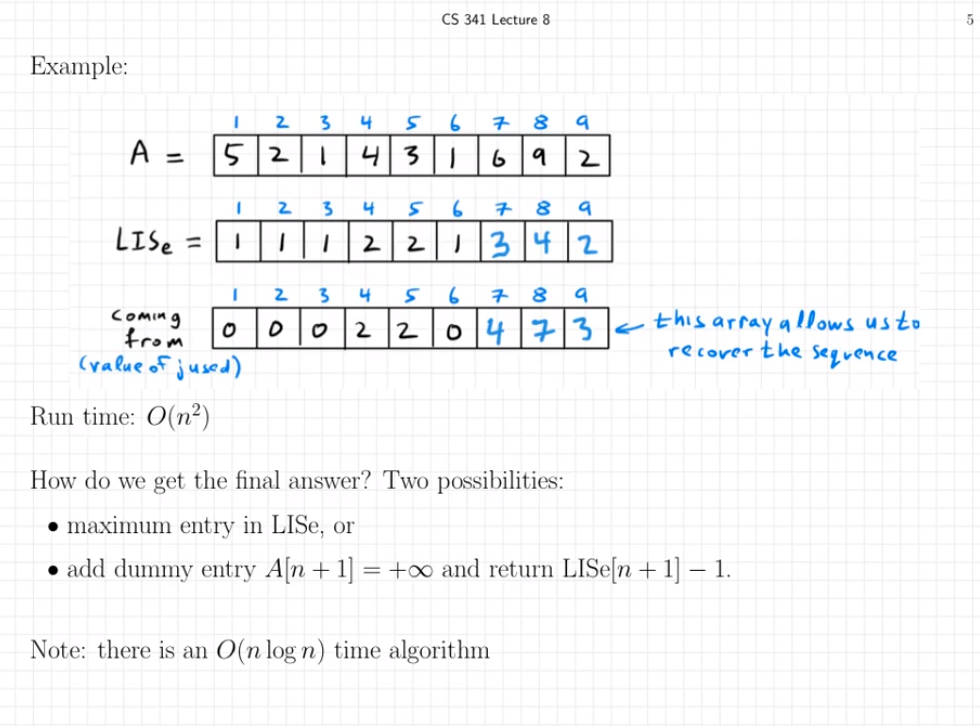 CS 341 Lecture 8 5
Example:
1 2 3 4 5 6 7 8 9
A = 5 2 1 4 3 1 6 9 2
1 2 3 4 5 6 7 8 9
LISe = 1 1 1 2 2 1 3 4 2
1 2 3 4 5 6 7 8 9
coming from 0 0 0 2 2 0 4 7 3 ← this array allows us to
(value of j used) recover the sequence
Run time: O(n²)
How do we get the final answer? Two possibilities:
• maximum entry in LISe, or
• add dummy entry A[n + 1] = +∞ and return LISe[n + 1] − 1.
Note: there is an O(n log n) time algorithm